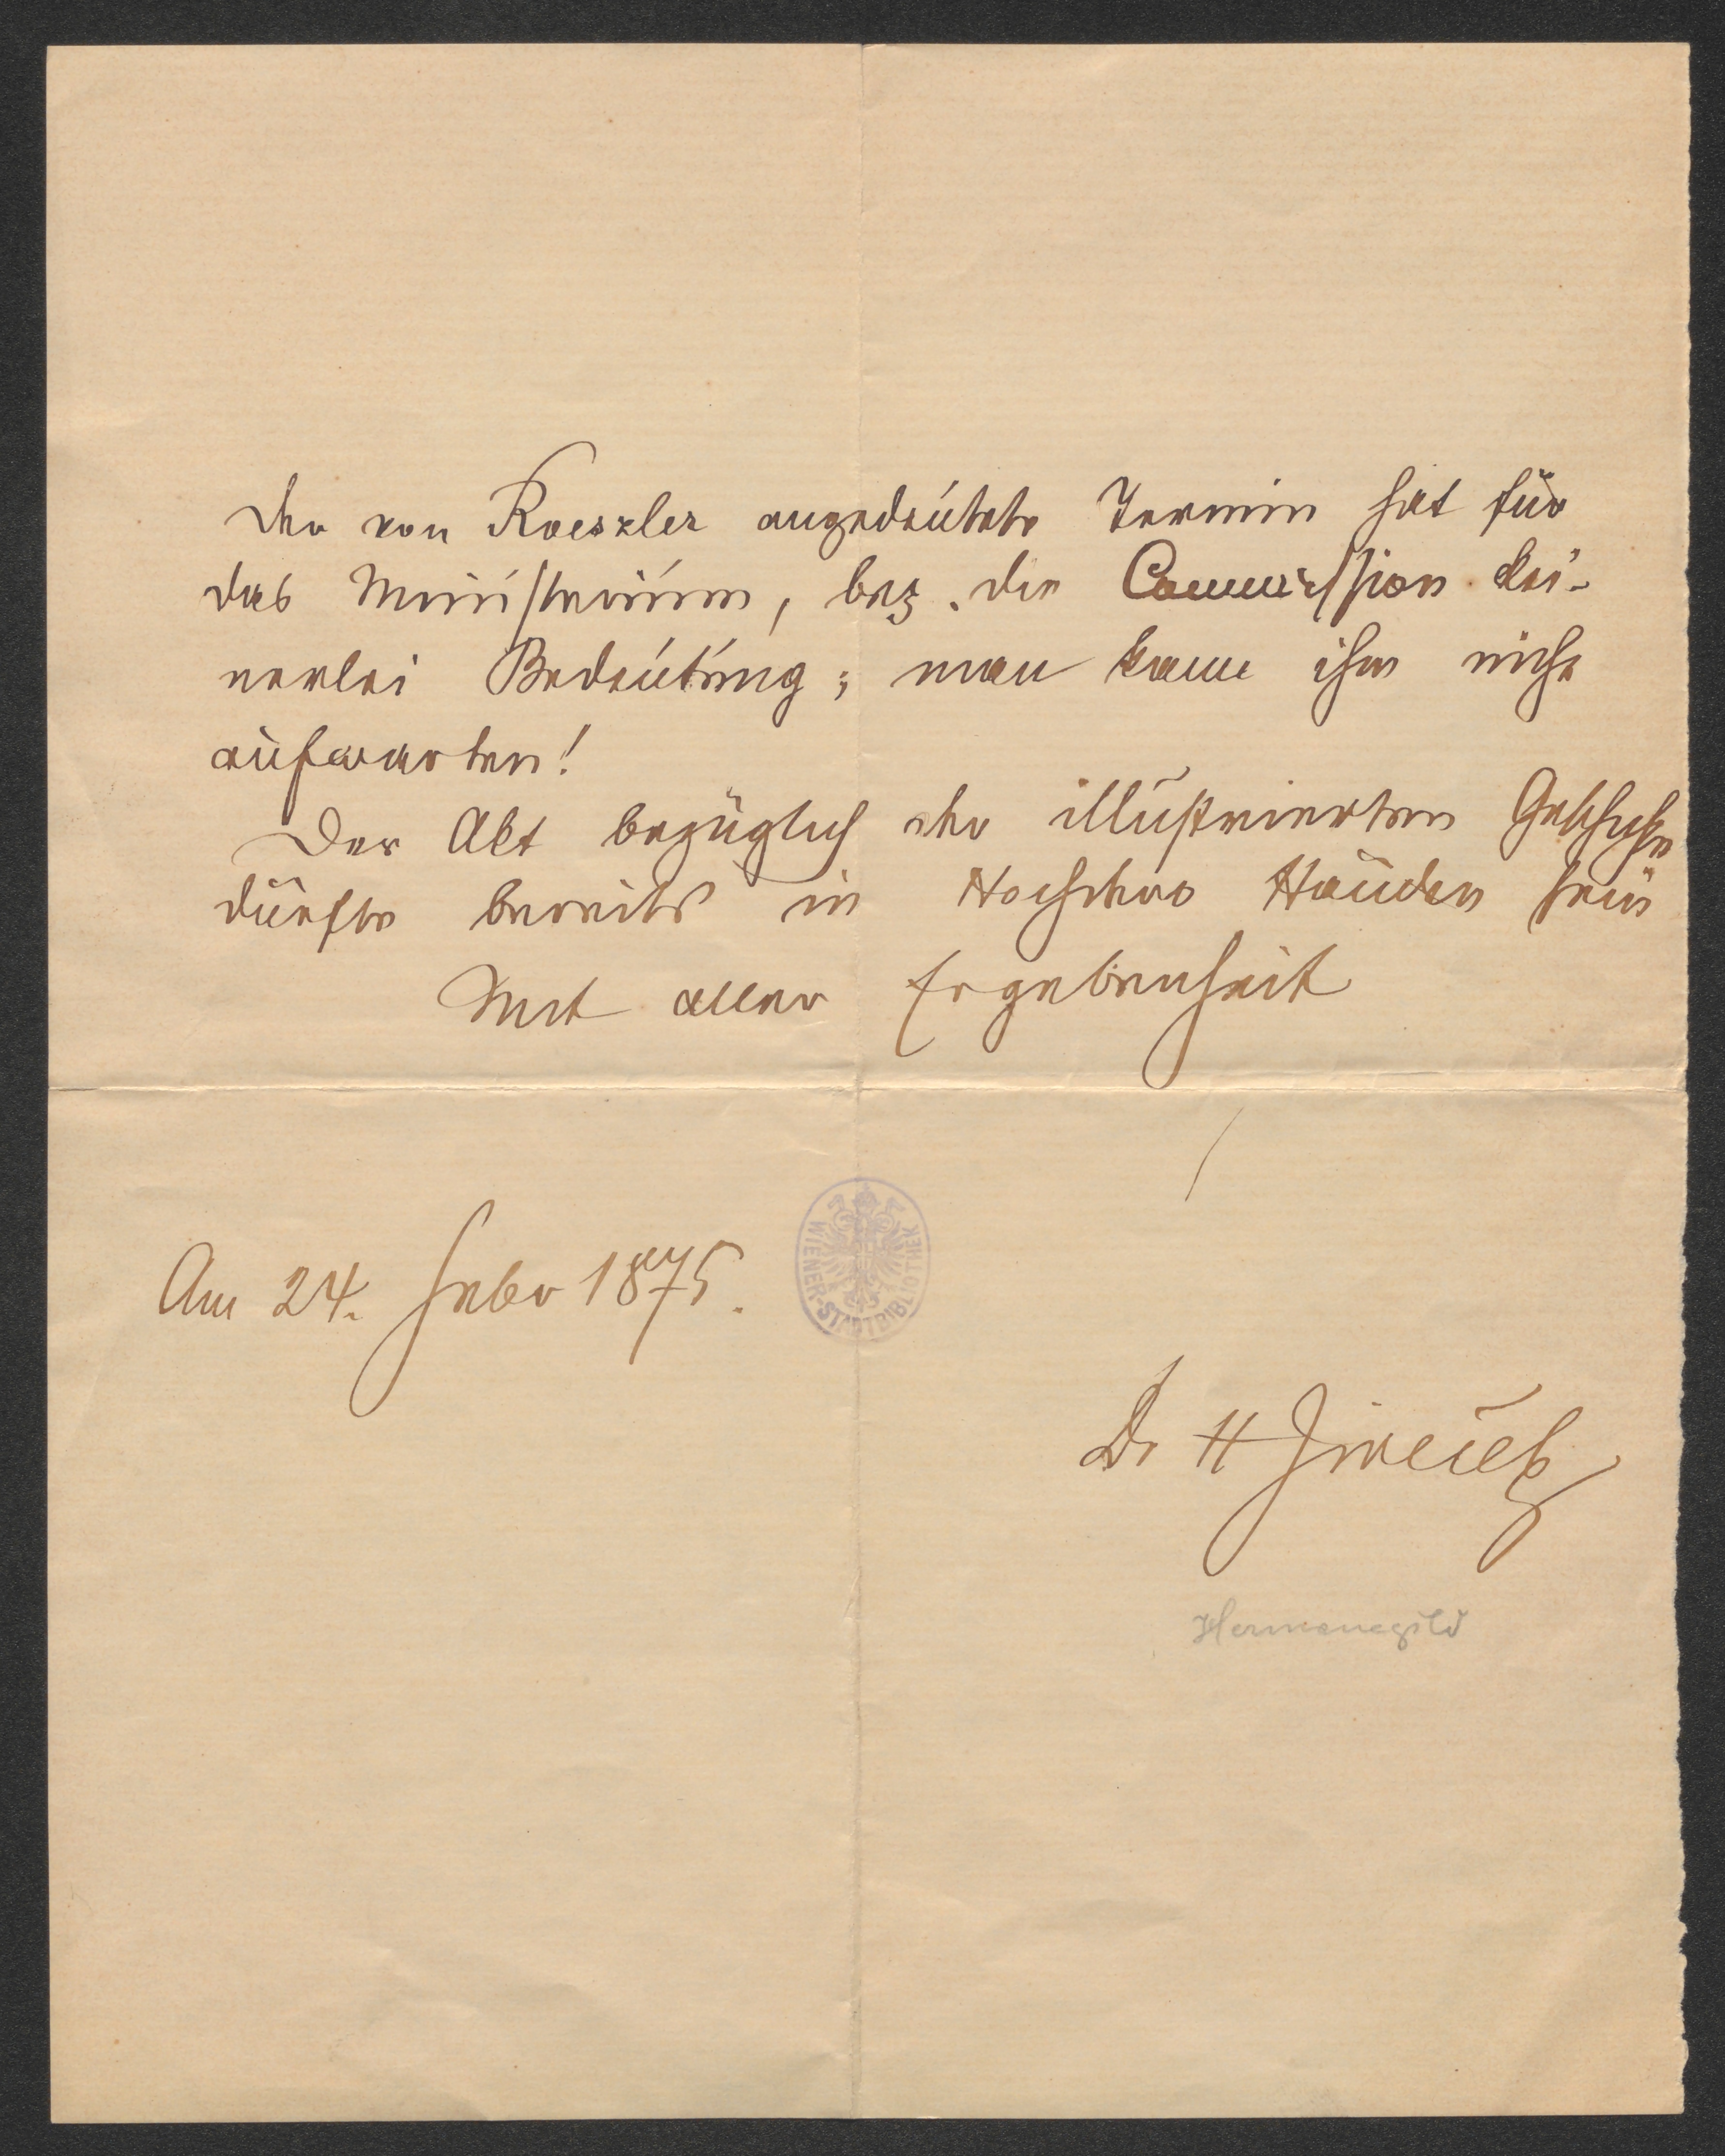 Der von Roeszler angedeutete Termin hat für
das Ministerium, bez. die Commission kei-
nerlei Bedeutung; man kann ihm nicht
aufwarten!
Der Akt bezüglich der illustrierten Geschichte
dürfte bereits in Höchster Händen sein
Mit aller Ergebenheit
Am 24. Febr 1875.
WIENER STADTBIBLIOTHEK
Dr H Jireček
Hermenegild